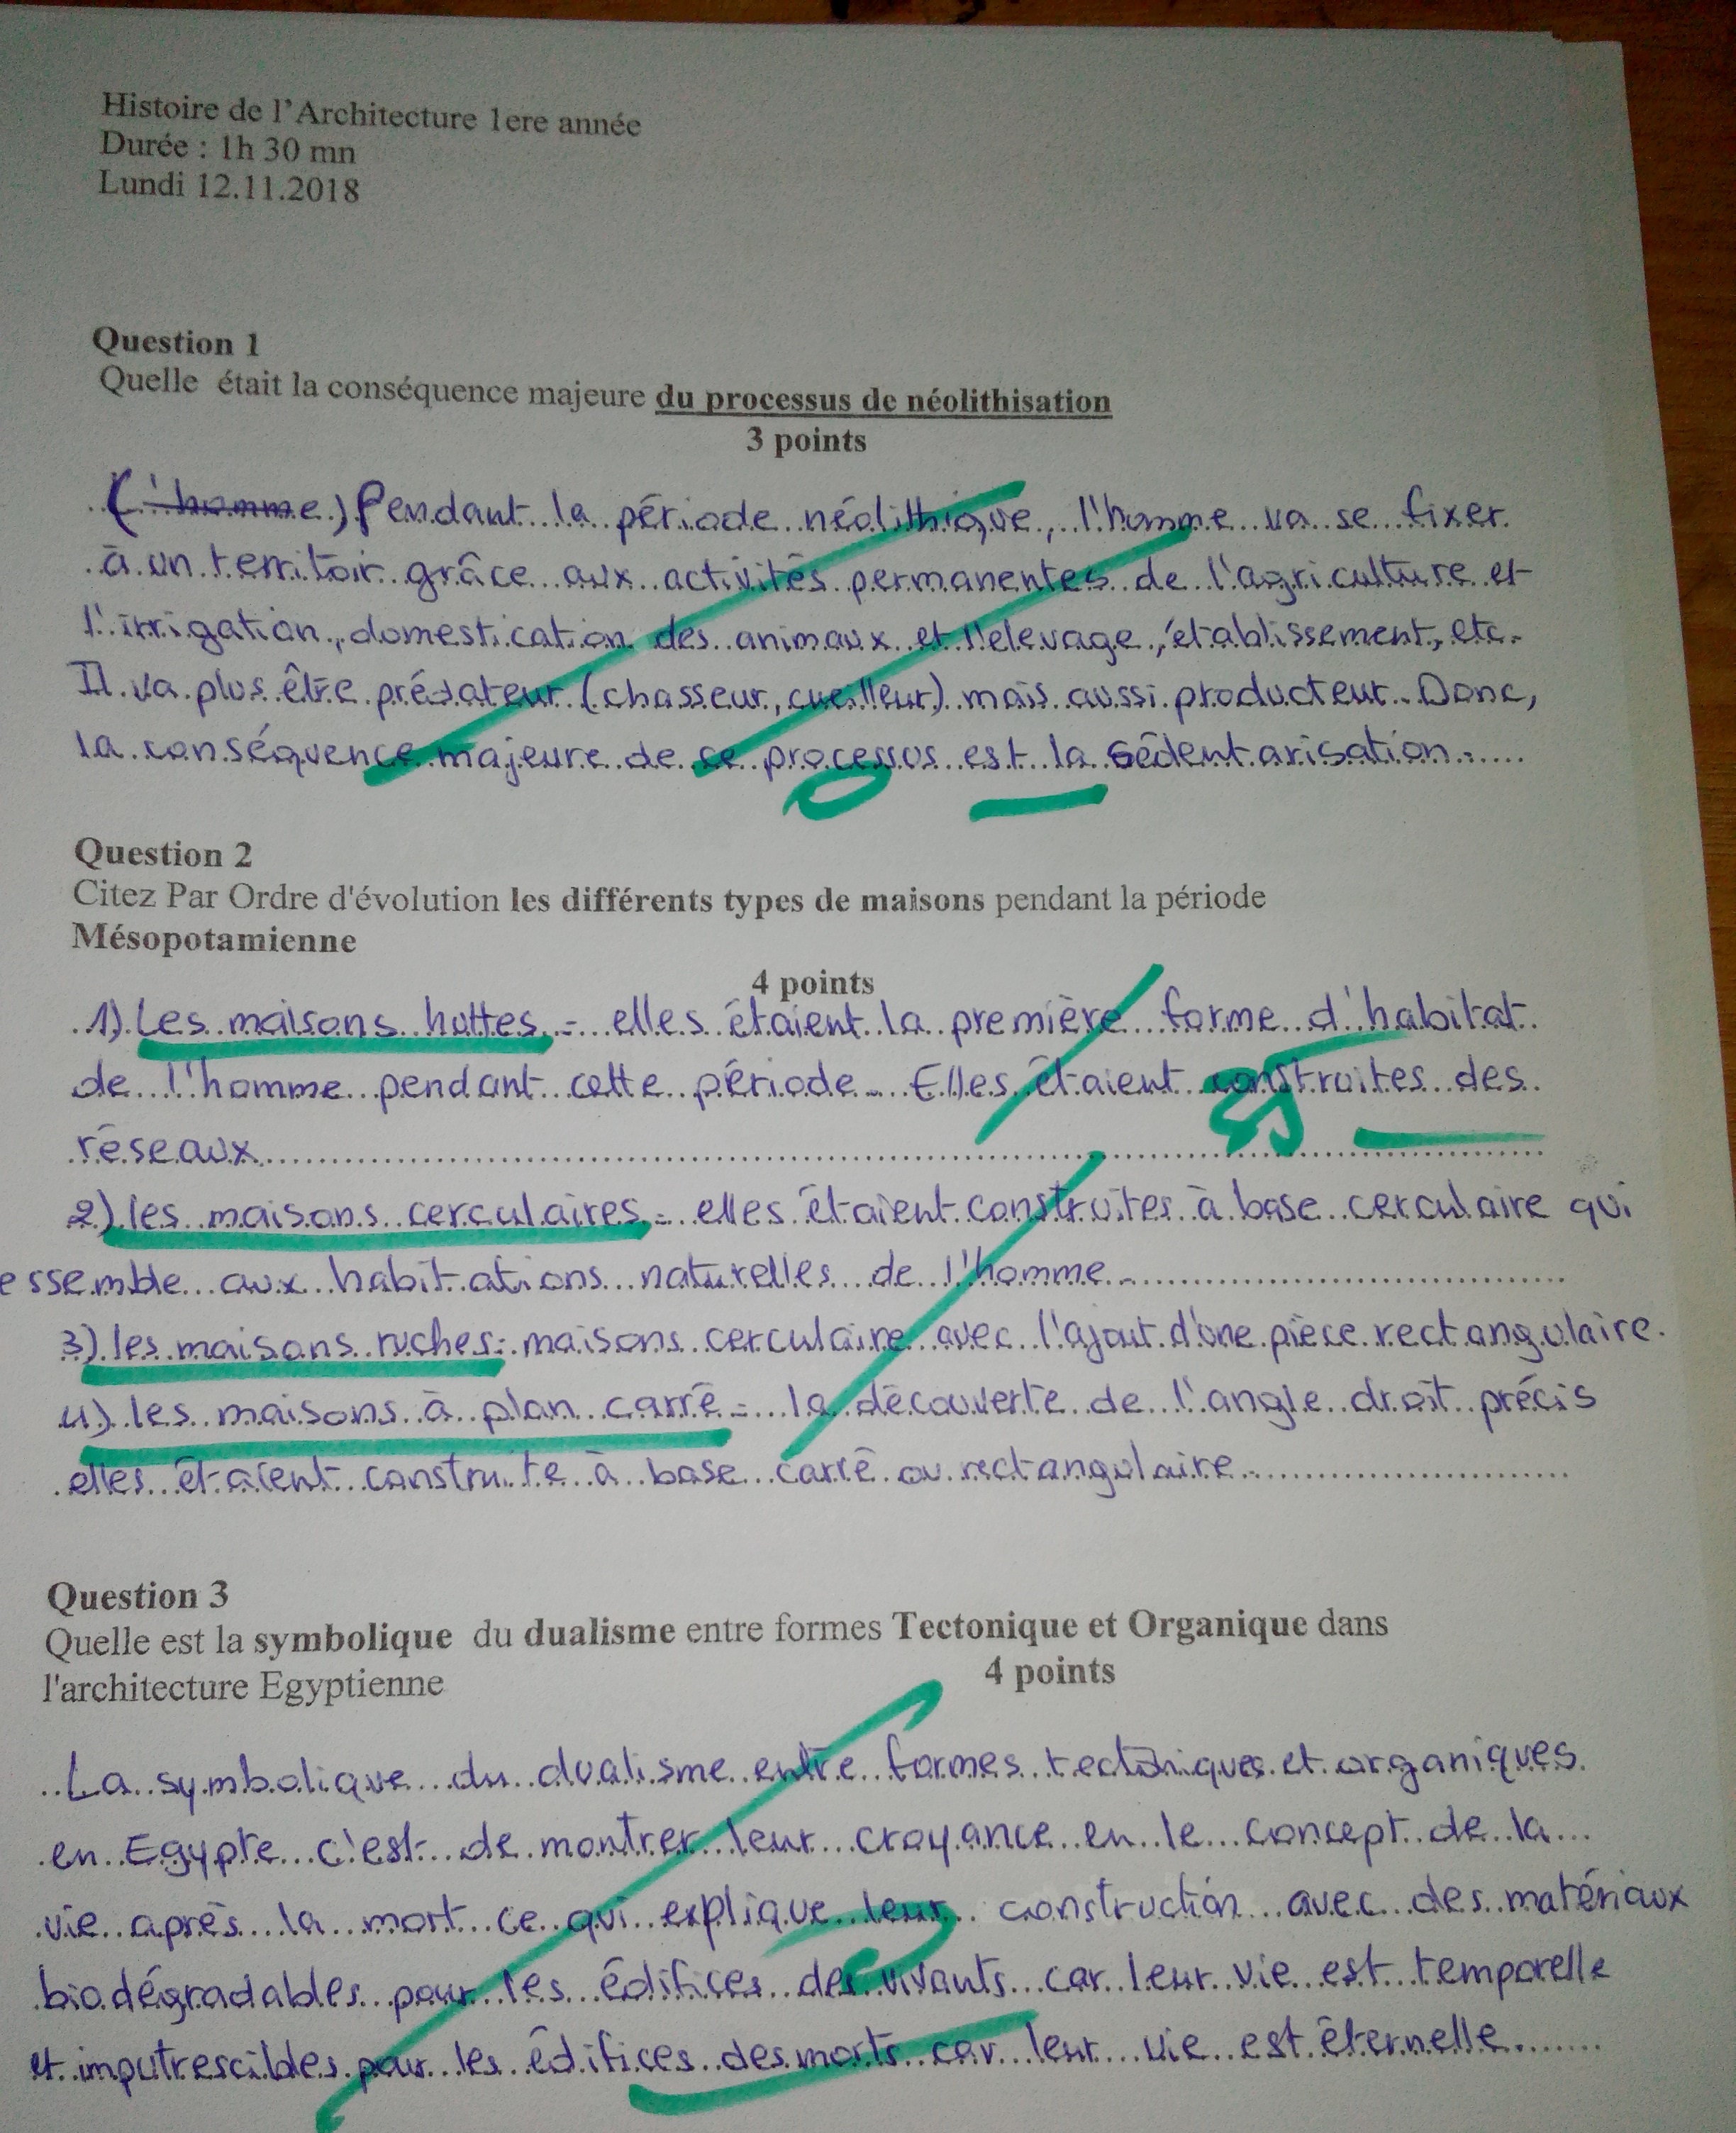 Histoire de l'Architecture 1ere année
Durée : 1h 30 mn
Lundi 12.11.2018
Question 1
Quelle était la conséquence majeure du processus de néolithisation
3 points
(l'homme) Pendant la période néolithique, l'homme va se fixer
à un territoir grâce aux activités permanentes de l'agriculture et
l'irrigation, domestication des animaux et l'elevage, établissement, etc.
Il va plus être prédateur (chasseur, cueilleur) mais aussi producteur. Donc,
la conséquence majeure de ce processus est la sédentarisation.
Question 2
Citez Par Ordre d'évolution les différents types de maisons pendant la période
Mésopotamienne
4 points
1) Les maisons huttes = elles étaient la première forme d'habitat
de l'homme pendant cette période. Elles étaient construites des
réseaux
2) les maisons cerculaires = elles étaient construites à base cerculaire qui
essemble aux habitations naturelles de l'homme.
3) les maisons ruches : maisons cerculaire avec l'ajout d'une pièce rectangulaire.
4) les maisons à plan carré = la découverte de l'angle droit précis
elles étaient construite à base carré ou rectangulaire.
Question 3
Quelle est la symbolique du dualisme entre formes Tectonique et Organique dans
l'architecture Egyptienne
4 points
La symbolique du dualisme entre formes tectoniques et organiques
en Egypte c'est de montrer leur croyance en le concept de la
vie après la mort ce qui explique leur construction avec des matériaux
biodégradables pour les édifices des vivants car leur vie est temporelle
et imputrescibles pour les édifices des morts car leur vie est éternelle